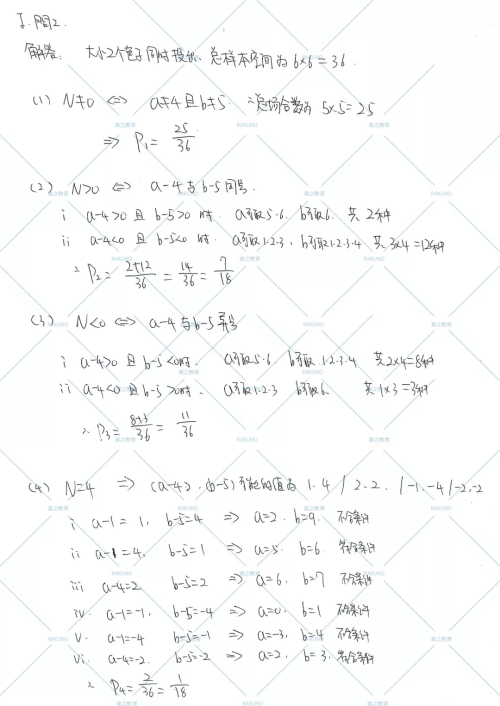 I. 問2.
解答: 大小2个色子同时投, 总样本空间为 6×6=36
(1) N≠0 ⇔ a≠4且b≠5. ∴总场合数为 5×5=25
⇒ P₁= 25/36
(2) N>0 ⇔ a-4与b-5同号.
i a-4>0 且 b-5>0 时. a可取5.6. b可取6. 共2种
ii a-4<0 且 b-5<0 时. a可取1.2.3, b可取1.2.3.4 共3×4=12种
∴ P₂= 2+12/36 = 14/36 = 7/18
(3) N<0 ⇔ a-4与b-5异号
i a-4>0 且 b-5<0时. a可取5.6 b可取.1.2.3.4 共2×4=8种
ii a-4<0 且 b-5>0时. a可取1.2.3 b可取6. 共1×3=3种
∴ P₃= 8+3/36 = 11/36
(4) N=4 ⇒ (a-4), (b-5)可能的值为 1.4 / 2.2. / -1.-4 / -2.-2
i a-1=1, b-5=4 ⇒ a=2. b=9. 不合条件
ii a-1=4, b-5=1 ⇒ a=5. b=6 符合条件
iii a-4=2 b-5=2 ⇒ a=6. b=7 不合条件
iv. a-1=-1, b-5=-4 ⇒ a=0. b=1 不合条件
v. a-1=-4 b-5=-1 ⇒ a=-3, b=4 不合条件
vi. a-4=-2. b-5=-2 ⇒ a=2, b=3. 符合条件
∴ P₄= 2/36 = 1/18